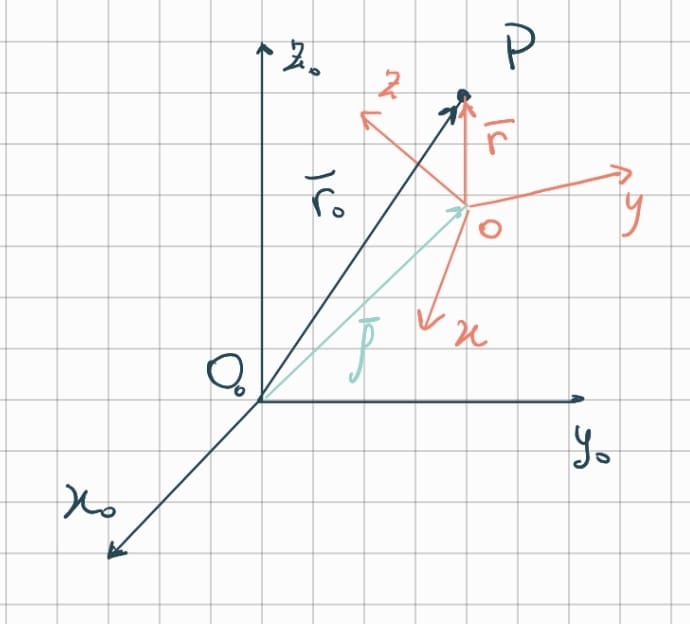 P
z₀
z
r̅
r̅₀
y
O
p̅
x
O₀
y₀
x₀